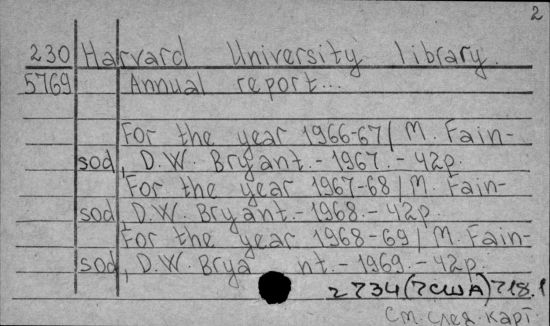 2
230 Harvard University library.
5769 Annual report...
For the year 1966-67 / M. Fain-
sod, D.W. Bryant. - 1967. - 42p.
For the year 1967-68 / M. Fain-
sod, D.W. Bryant. - 1968. - 42p.
For the year 1968-69 / M. Fain-
sod, D.W. Brya nt. - 1969. - 42p.
2734(7США)718.1
См. след. карт